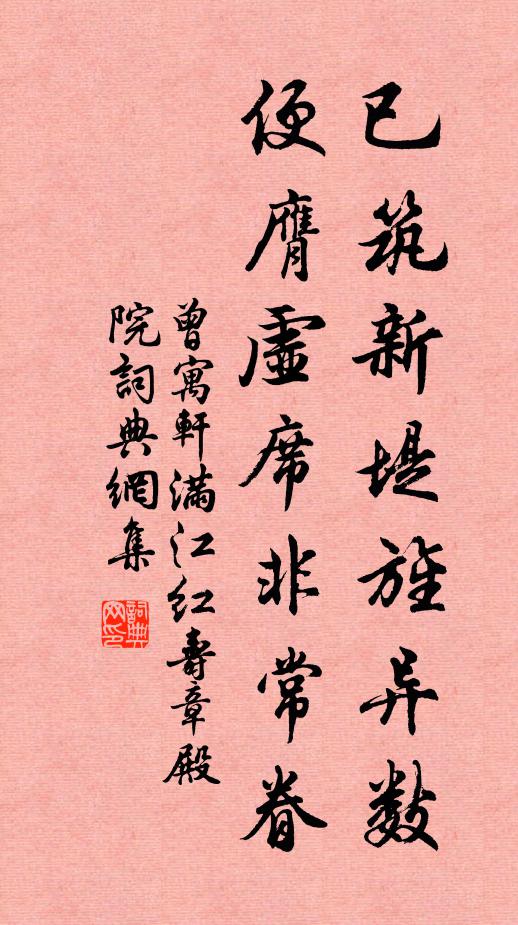 已筑新堤旌异数
便膺虚席非常眷
曾寓軒满江红壽章殿
院詞典網集
詞典网印